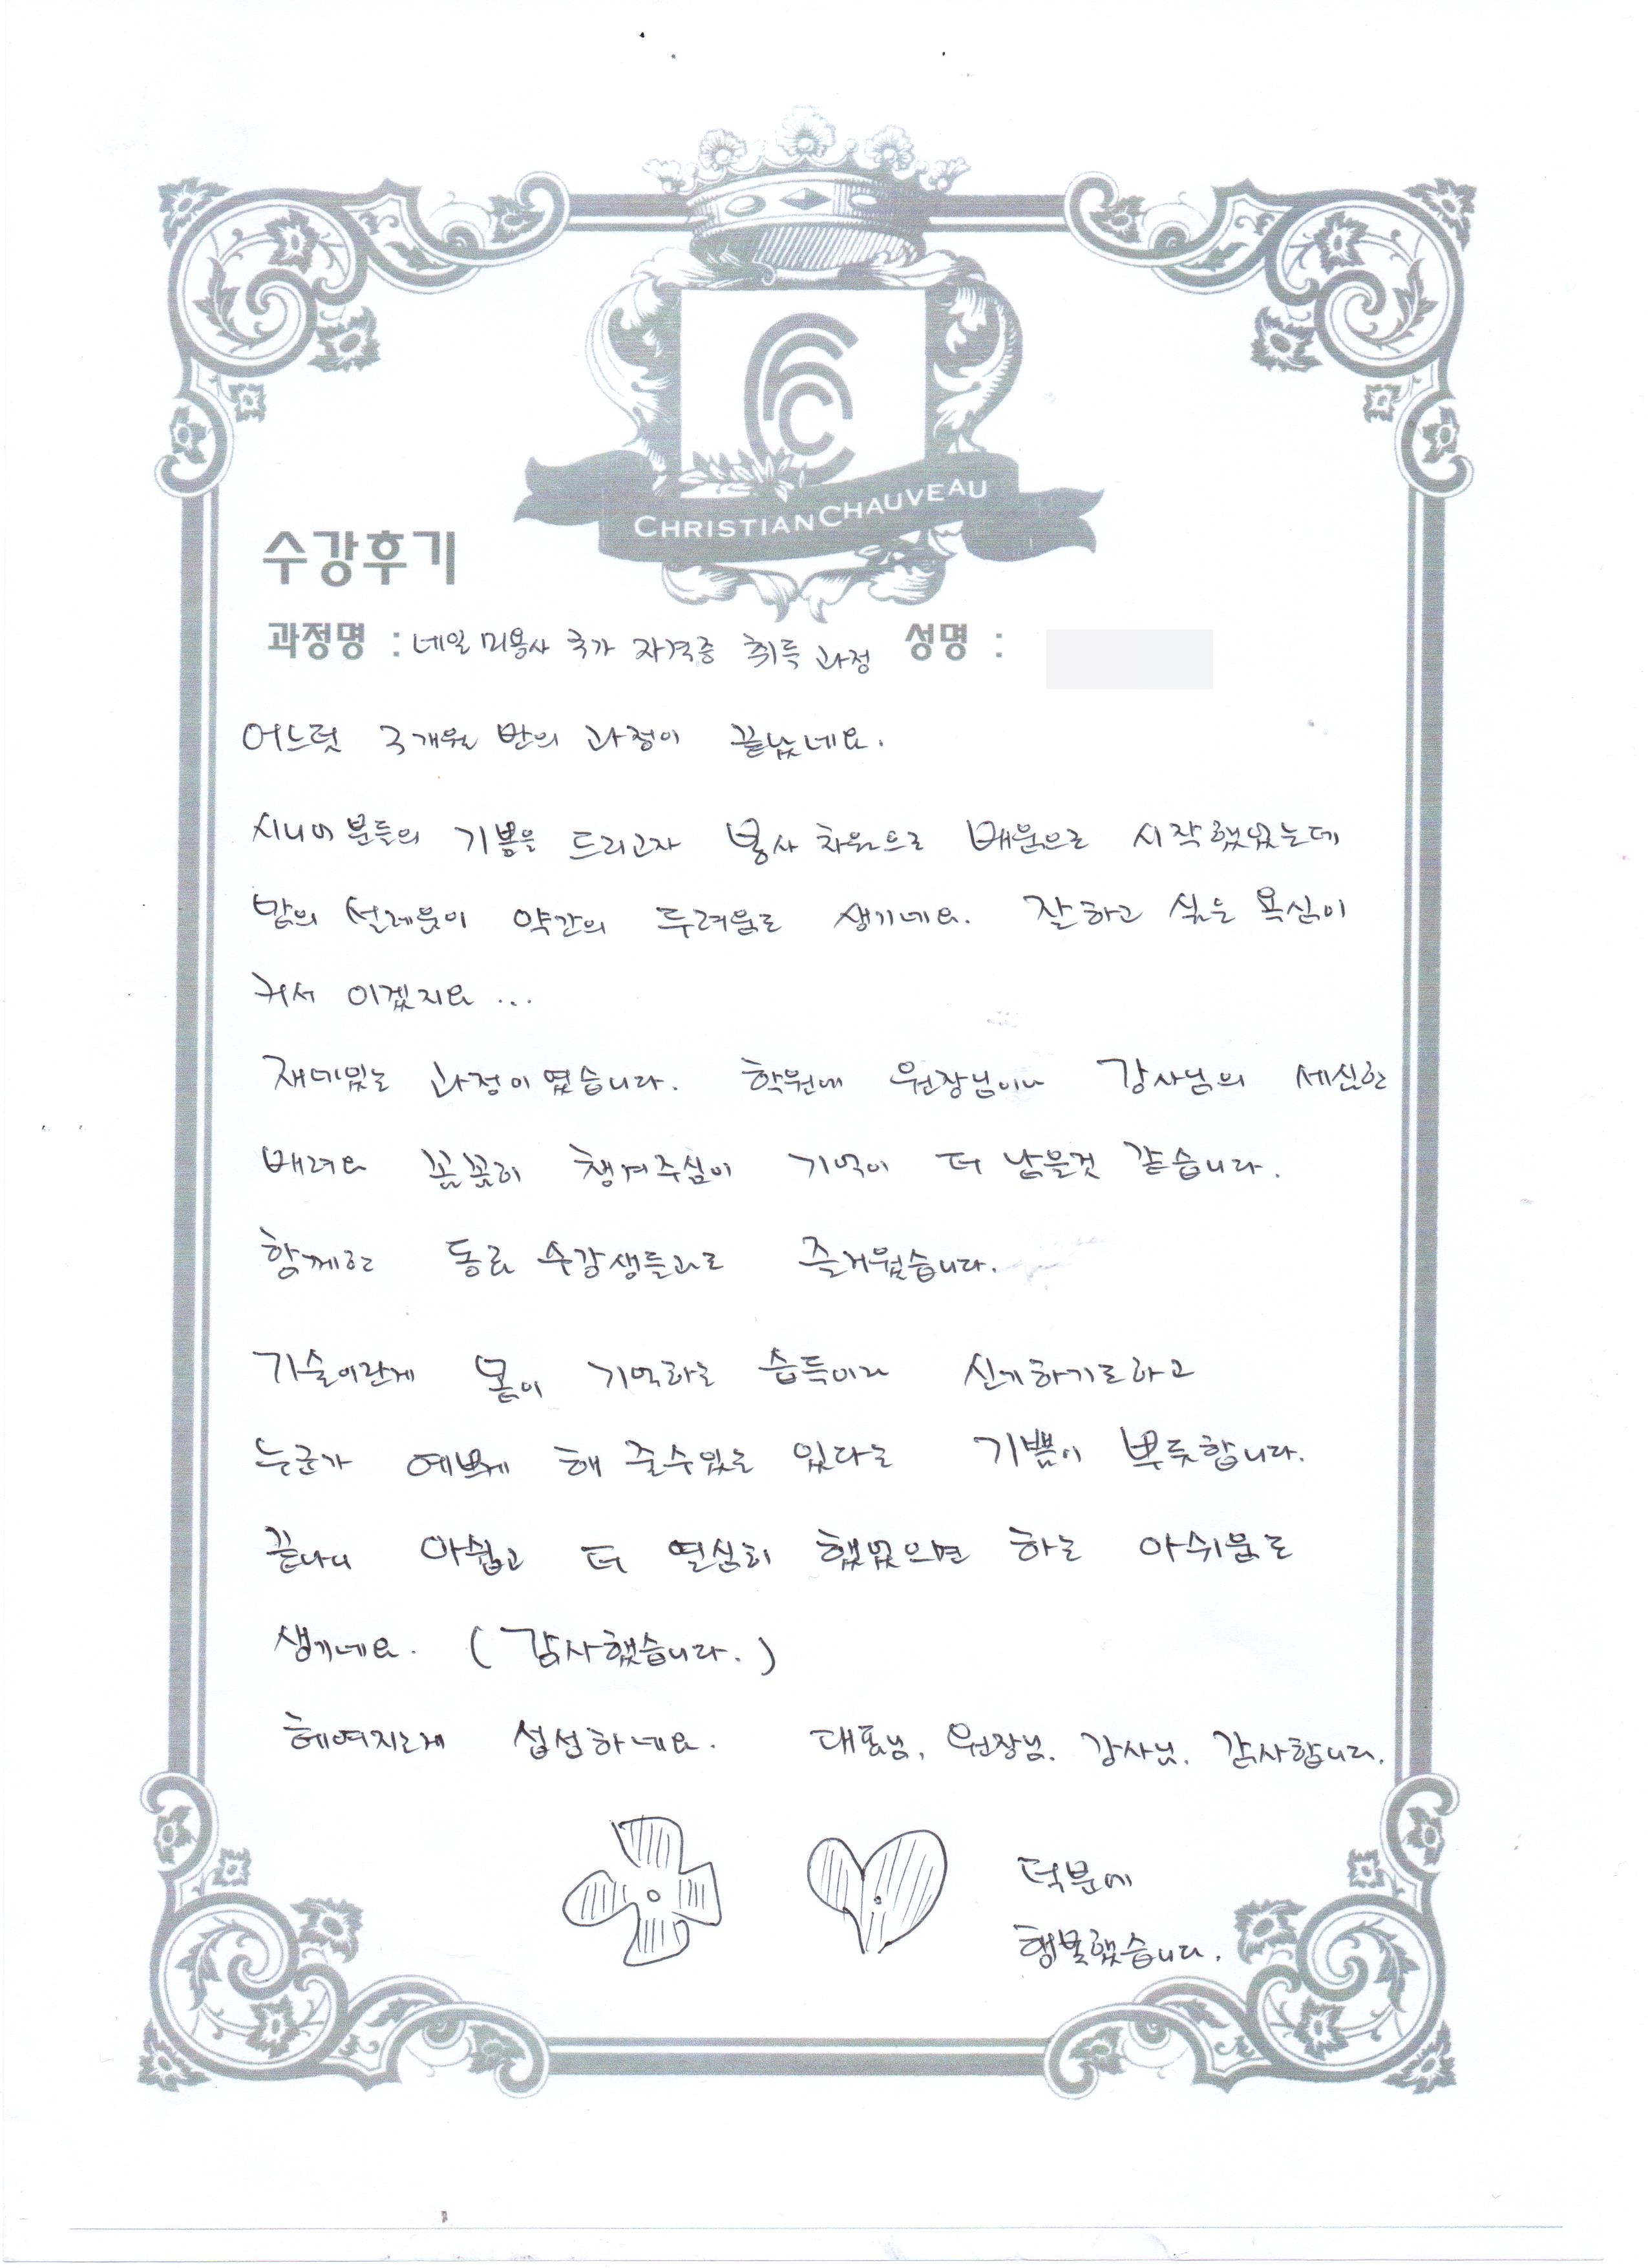 CHRISTIAN CHAUVEAU
수강후기
과정명 : 네일 미용사 국가 자격증 취득 과정 성명 :
어느덧 3개월 반의 과정이 끝났네요.
시니어 분들의 기쁨을 드리고자 봉사 차원으로 배움으로 시작했었는데
밤의 설레움이 약간의 두려움로 생기네요. 잘하고 싶은 욕심이
커서 이겠지요 ...
재미있는 과정이였습니다. 학원에 원장님이나 강사님의 세심한
배려와 꼼꼼히 챙겨주심이 기억이 더 남을것 같습니다.
함께한 동료 수강생들과도 즐거웠습니다.
기술이란게 몸이 기억하는 습득이라 신기하기도하고
누군가 예쁘게 해 줄수있는 있다는 기쁨이 뿌듯합니다.
끝나니 아쉽고 더 열심히 했었으면 하는 아쉬움도
생기네요. (감사했습니다.)
헤여지는게 섭섭하네요. 대표님, 원장님. 강사님. 감사합니다.
덕분에
행복했습니다.